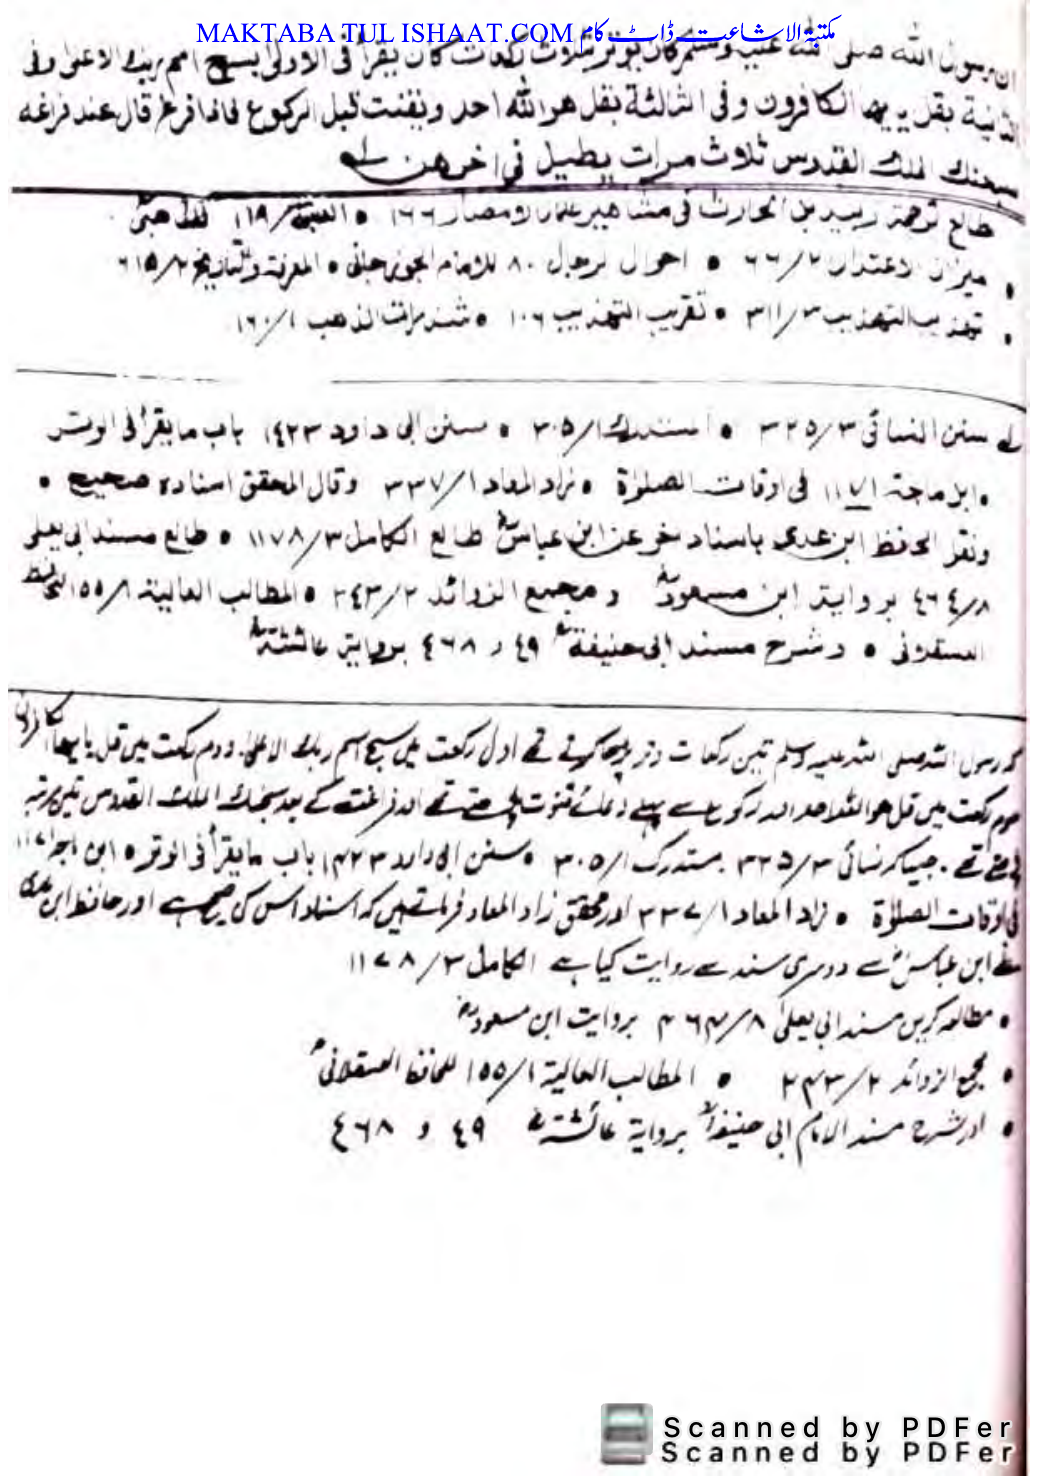 MAKTABA TUL ISHAAT.COM مکتبۃ الاشاعت ڈاٹ کام
ان رسول الله صلى الله عليه وسلم كان يوتر بثلاث ركعات كان يقرأ فى الاولى بسبح اسم ربك الاعلى وفى
الثانية بقل يا يها الكافرون وفى الثالثة بقل هو الله احد ويقنت قبل الركوع فاذا فرغ قال عند فراغه
سبحنك الملك القدوس ثلاث مرات يطيل فى اخرهن لـه
طالع ترجمة زبيد بن الحارث فى مشاهير علماء الامصار ١٦٦ • العبر ١/١٩
• ميزان الاعتدال ٢/٦٦ • احوال الرجال ٨٠ للامام الجوزجانى • المعرفة والتاريخ ٢/٦١٥
• تهذيب التهذيب ٣/٣١١ • تقريب التهذيب ١٠٦ • شذرات الذهب ١/١٦٠
لـه سنن النسائى ٣/٢٣٥ • المستدرك ١/٣٠٥ • سنن ابى داود ١٤٢٣ باب ما يقرأ فى الوتر
• ابن ماجة ١١٧١ فى اوقات الصلوٰة • زاد المعاد ١/٣٣٧ وقال المحقق اسناده صحيح •
ونقل الحافظ ابن عدى باسناد اخر عن ابن عباسؓ طالع الكامل ٣/١١٧٨ • طالع مسند ابى يعلى
٨/٤٦٤ بروايت ابن مسعودؓ و مجمع الزوائد ٢/٢٤٣ • المطالب العالية ١/١٥٥ للحافظ
العسقلانى • و شرح مسند ابى حنيفةؒ ٤٩ و ٤٦٨ برواية عائشةؓ
کہ رسول اللہ صلی اللہ علیہ وسلم تین رکعات وتر پڑھا کرتے تھے اول رکعت میں سبح اسم ربک الاعلیٰ، دوم رکعت میں قل یا یہا الکافرون
سوم رکعت میں قل ہو اللہ احد اور رکوع سے پہلے دعائے قنوت پڑھتے تھے اور فراغت کے بعد سبحنک الملک القدوس تین مرتبہ
پڑھتے تھے۔ جیسا کہ نسائی ٣/٢٣٥ مستدرک ١/٣٠٥ • سنن ابی داود ١٤٢٣ باب ما یقرأ فی الوتر • ابن ماجہ ١١٧١
فی اوقات الصلوٰة • زاد المعاد ١/٣٣٧ اور محقق زاد المعاد فرماتے ہیں کہ اسناد اس کی صحیح ہے اور حافظ ابن عدی
نے ابن عباسؓ سے دوسری سند سے روایت کیا ہے الکامل ٣/١١٧٨
• مطالعہ کریں مسند ابی یعلیٰ ٨/٤٦٤ بروایت ابن مسعودؓ
• مجمع الزوائد ٢/٢٤٣ • المطالب العالیة ١/١٥٥ للحافظ العسقلانیؒ
• اور شرح مسند الامام ابی حنیفہؒ بروایة عائشہؓ ٤٩ و ٤٦٨
Scanned by PDFer
Scanned by PDFer